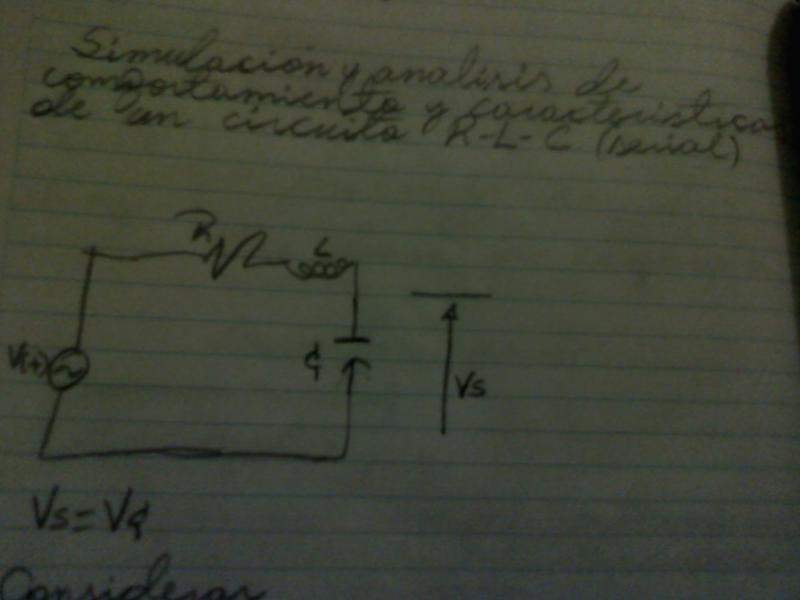 Simulación y analisis de
comportamiento y caracteristicas
de un circuito R-L-C (serial)
R
L
V(t)
C
Vs
Vs=Vc
Considerar